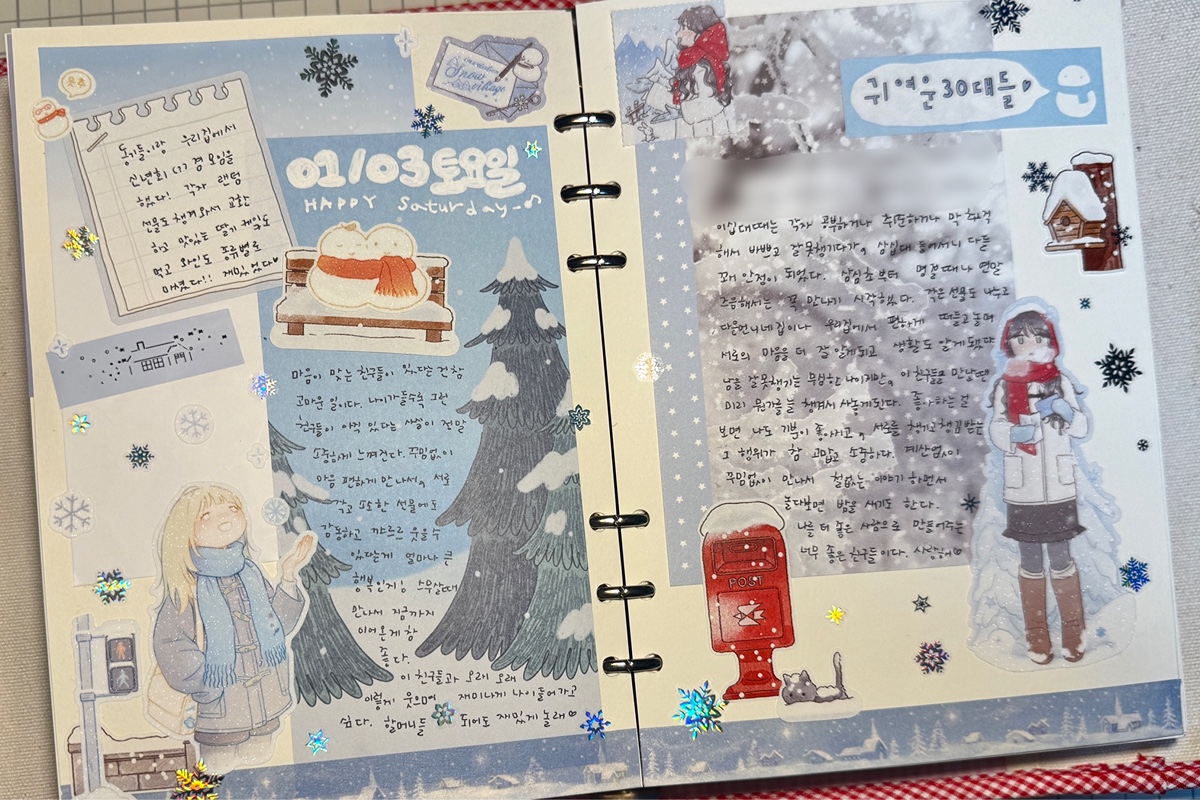 동기들이랑 우리집에서
신년회 (?) 겸 모임을
했다! 각자 랜덤
선물도 챙겨와서 교환
하고 맛있는 딸기 케익도
먹고 와인도 종류별로
마셨다!! 재밌었다♡
Snow
village
01/03 토요일
HAPPY Saturday~♪
마음이 맞는 친구들이 있다는건 참
고마운 일이다. 나이가들수록 그런
친구들이 아직 있다는 사실이 정말
소중하게 느껴진다. 꾸밈없이
마음 편하게 만나서, 서로
각고 소소한 선물에도
감동하고 꺄르르 웃을수
있다는게 얼마나 큰
행복인가! 스무살때
만나서 지금까지
이어온게 참
좋다.
이 친구들과 오래 오래
이렇게 웃으며 재미나게 나이들어가고
싶다. 할머니들 되어도 재밌게 놀래♡
귀여운 30대들♡
이십대때는 각자 공부하거나 취준하거나 막 취직
해서 바쁘고 잘못챙기다가, 삼십대 들어서니 다들
꽤 안정이 되었다. 삼십초부터 명절때나 연말
즈음해서는 꼭 만나기 시작했다. 작은선물도 나누고
다운언니네집이나 우리집에서 편하게 떠들고놀며
서로의 마음을 더 잘 알게되고 생활도 알게됐다
남을 잘못챙기는 무심한 나이지만, 이 친구들을 만날땐
미리 뭔가를 챙겨서 사놓게된다. 좋아하는걸
보면 나도 기분이 좋아지고, 서로를 챙기고챙김받는
그 행위가 참 고맙고 소중하다. 계산없이
꾸밈없이 만나서 철없는 이야기 하면서
놀다보면 밤을 새기도 한다.
나를 더 좋은 사람으로 만들어주는
너무 좋은 친구들이다. 사랑해♡
POST